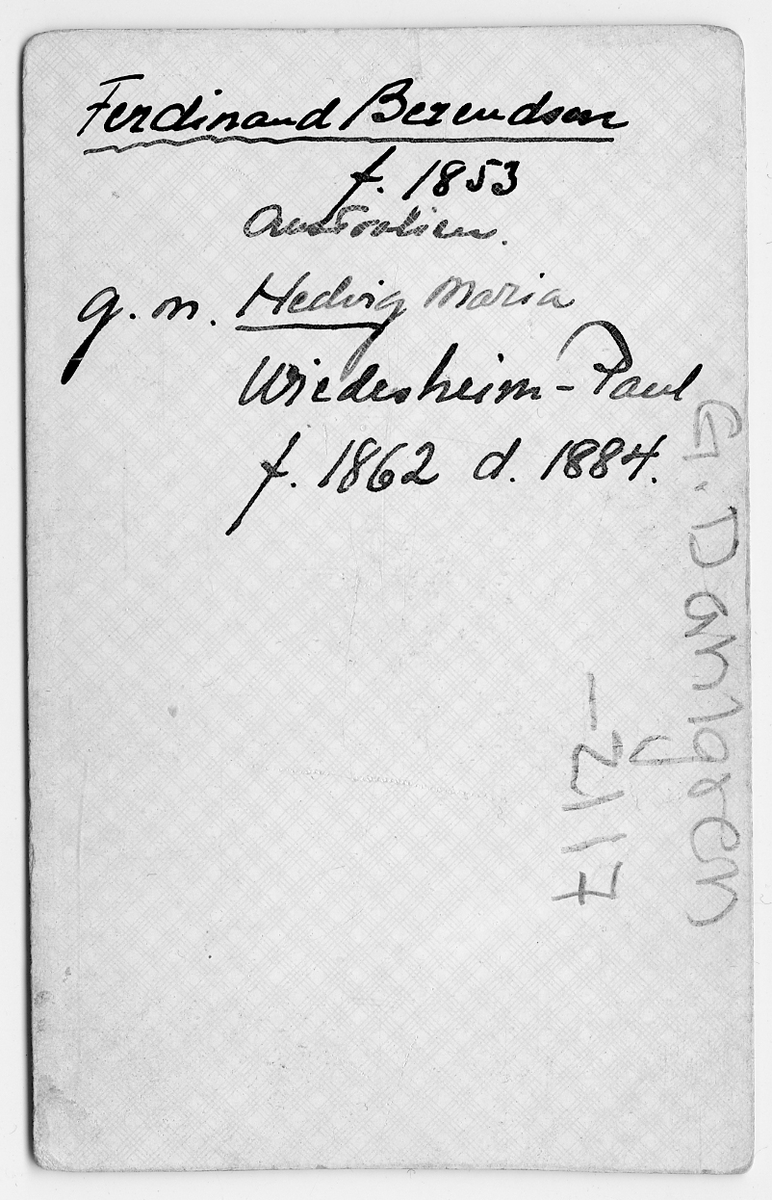 Ferdinand Berendson
f. 1853
Australien.
g. m. Hedvig Maria
Wiedesheim-Paul
f. 1862 d. 1884.
G. Danlgren
-2117